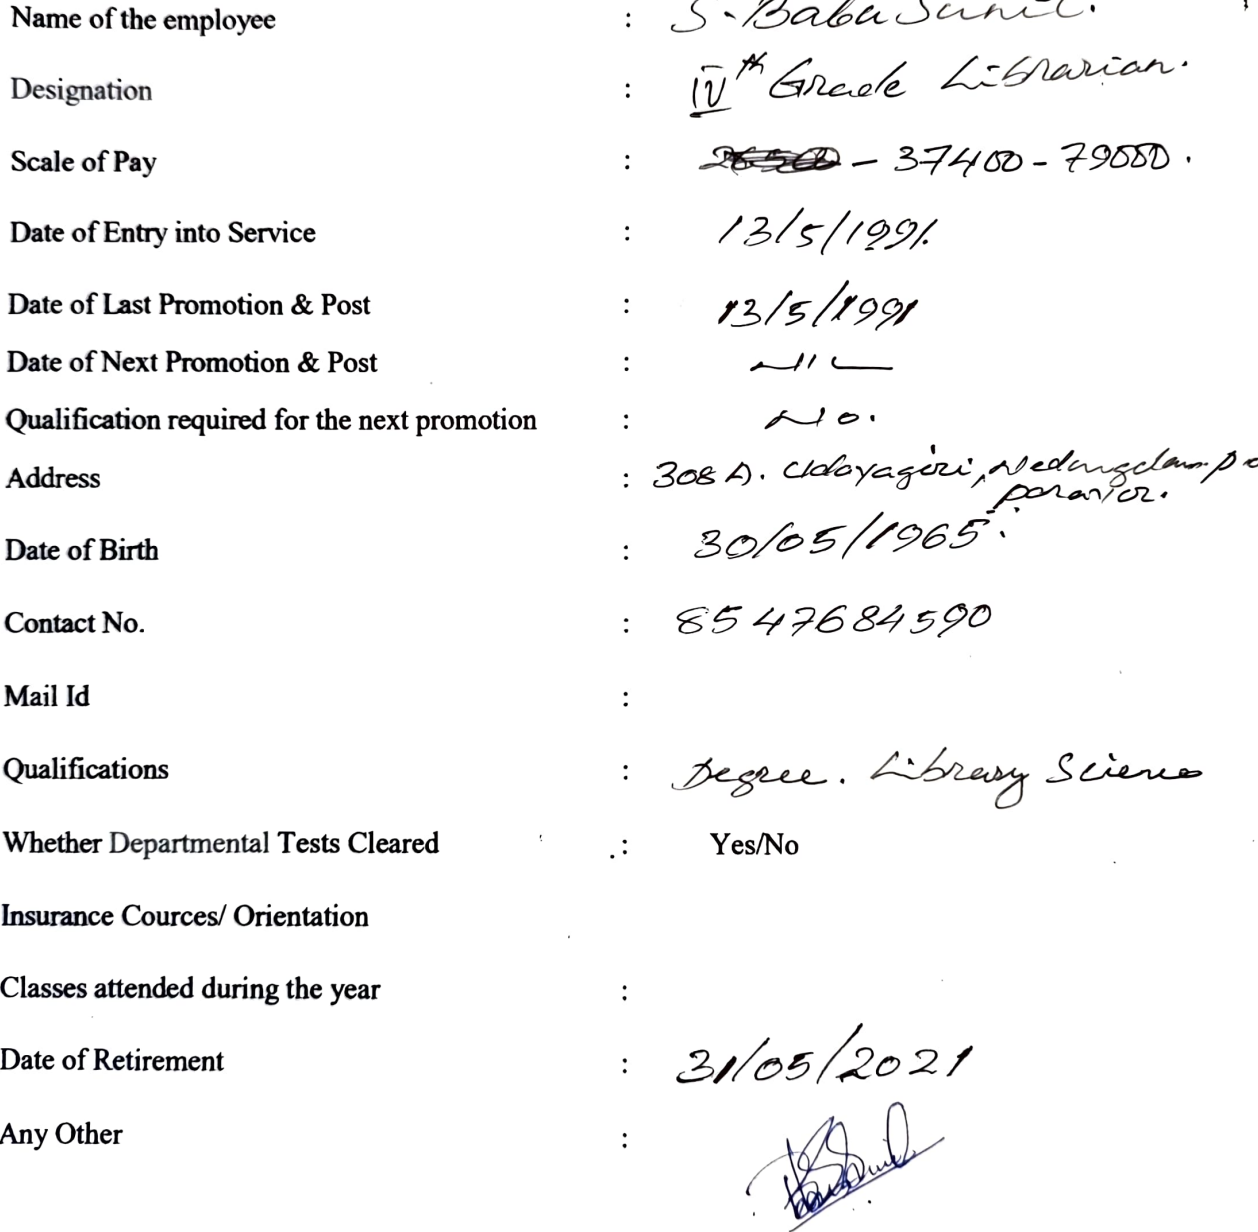 Name of the employee : S. Baba Sunil.
Designation : IVth Grade Librarian.
Scale of Pay : - 37400 - 79000.
Date of Entry into Service : 13/5/1991.
Date of Last Promotion & Post : 13/5/1991
Date of Next Promotion & Post : NIL
Qualification required for the next promotion : No.
Address : 308 A. Udayagiri, Nedungolam P.O
Paravur.
Date of Birth : 30/05/1965.
Contact No. : 8547684590
Mail Id :
Qualifications : Degree. Library Science
Whether Departmental Tests Cleared : Yes/No
Insurance Cources/ Orientation
Classes attended during the year :
Date of Retirement : 31/05/2021
Any Other :